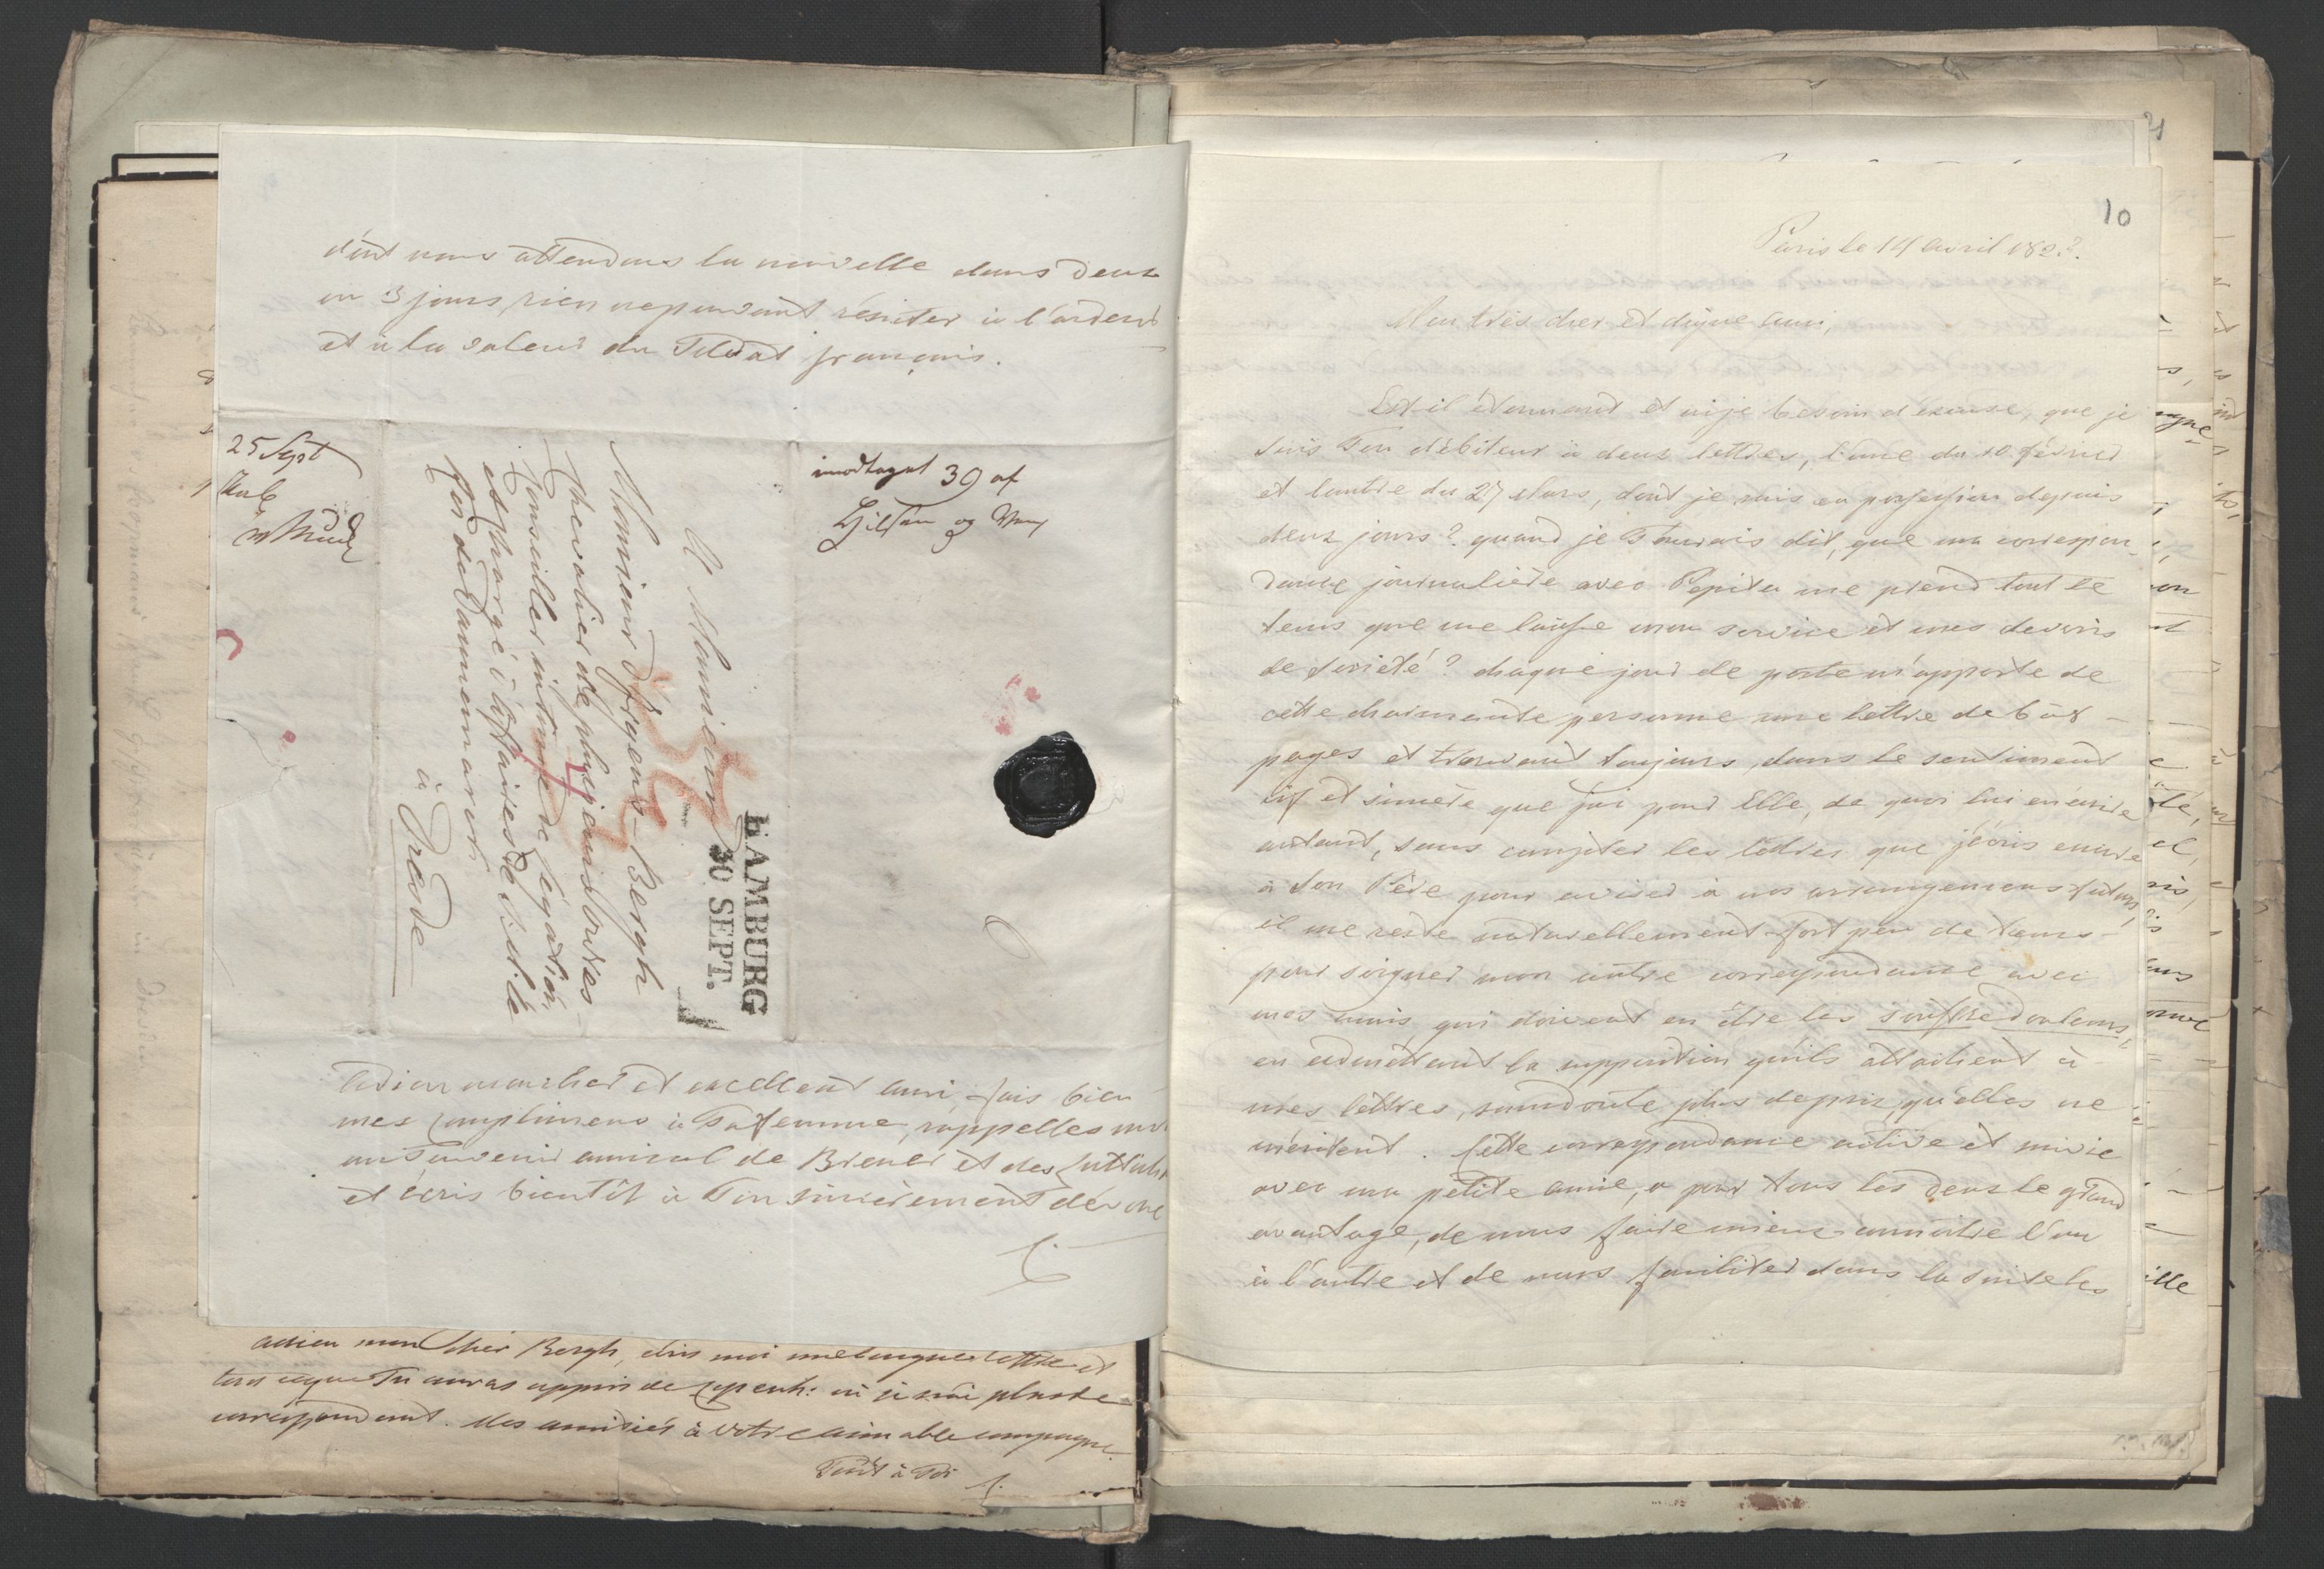 dont nous attendons la nouvelle dans deux
ou 3 jours, rien ne pouvant résister à l'ardeur
et à la valeur du Soldat français.
25 Sept
imodtaget 30 af
Hilsen og
A Monsieur
Monsieur d'Irgens-Bergh
Chevalier de plusieurs Ordres
Conseiller intime de Légation,
et chargé d'affaires de S. M. le
Roi de Dannemarck
à Dresde
HAMBURG
30 SEPT.
Adieu mon cher et excellent ami, fais bien
mes complimens à Ta femme, rappelles moi
au souvenir amical de Biener et des
et écris bientôt à Ton sincèrement dévoué
C
adieu mon cher Bergh, écris moi une longue lettre et
tout ce que Tu auras appris de Copenh: où je n'ai plus de
correspondant. Mes amitiés à votre aimable compagne.
Tout à Toi
C.
10
Paris le 14 avril 182?.
Mon très cher et digne ami,
Est-il étonnant et ai-je besoin d'excuse, que je
suis Ton débiteur à deux lettres, l'une du 10 février
et l'autre du 27 Mars, dont je suis en possession depuis
deux jours? quand je T'aurais dit, que ma correspon-
dance journalière avec Pepita me prend tout le
tems que me laisse mon service et mes devoirs
de société? chaque jour de poste m'apporte de
cette charmante personne une lettre de 6 à 8
pages et trouvant toujours, dans le sentiment
vif et sincère que j'ai pour Elle, de quoi lui en écrire
autant, sans compter les lettres que j'écris encore
à son Père pour aviser à nos arrangemens futurs,
il me reste naturellement fort peu de tems
pour soigner mon autre correspondance avec
mes amis qui doivent en être les souffre douleurs,
en admettant la supposition qu'ils attachent à
mes lettres, sans doute plus de prix qu'elles ne
méritent. Cette correspondance active et suivie
avec ma petite amie, a pour tous les deux le grand
avantage, de nous faire mieux connoitre l'un
à l'autre et de nous faciliter dans la suite les